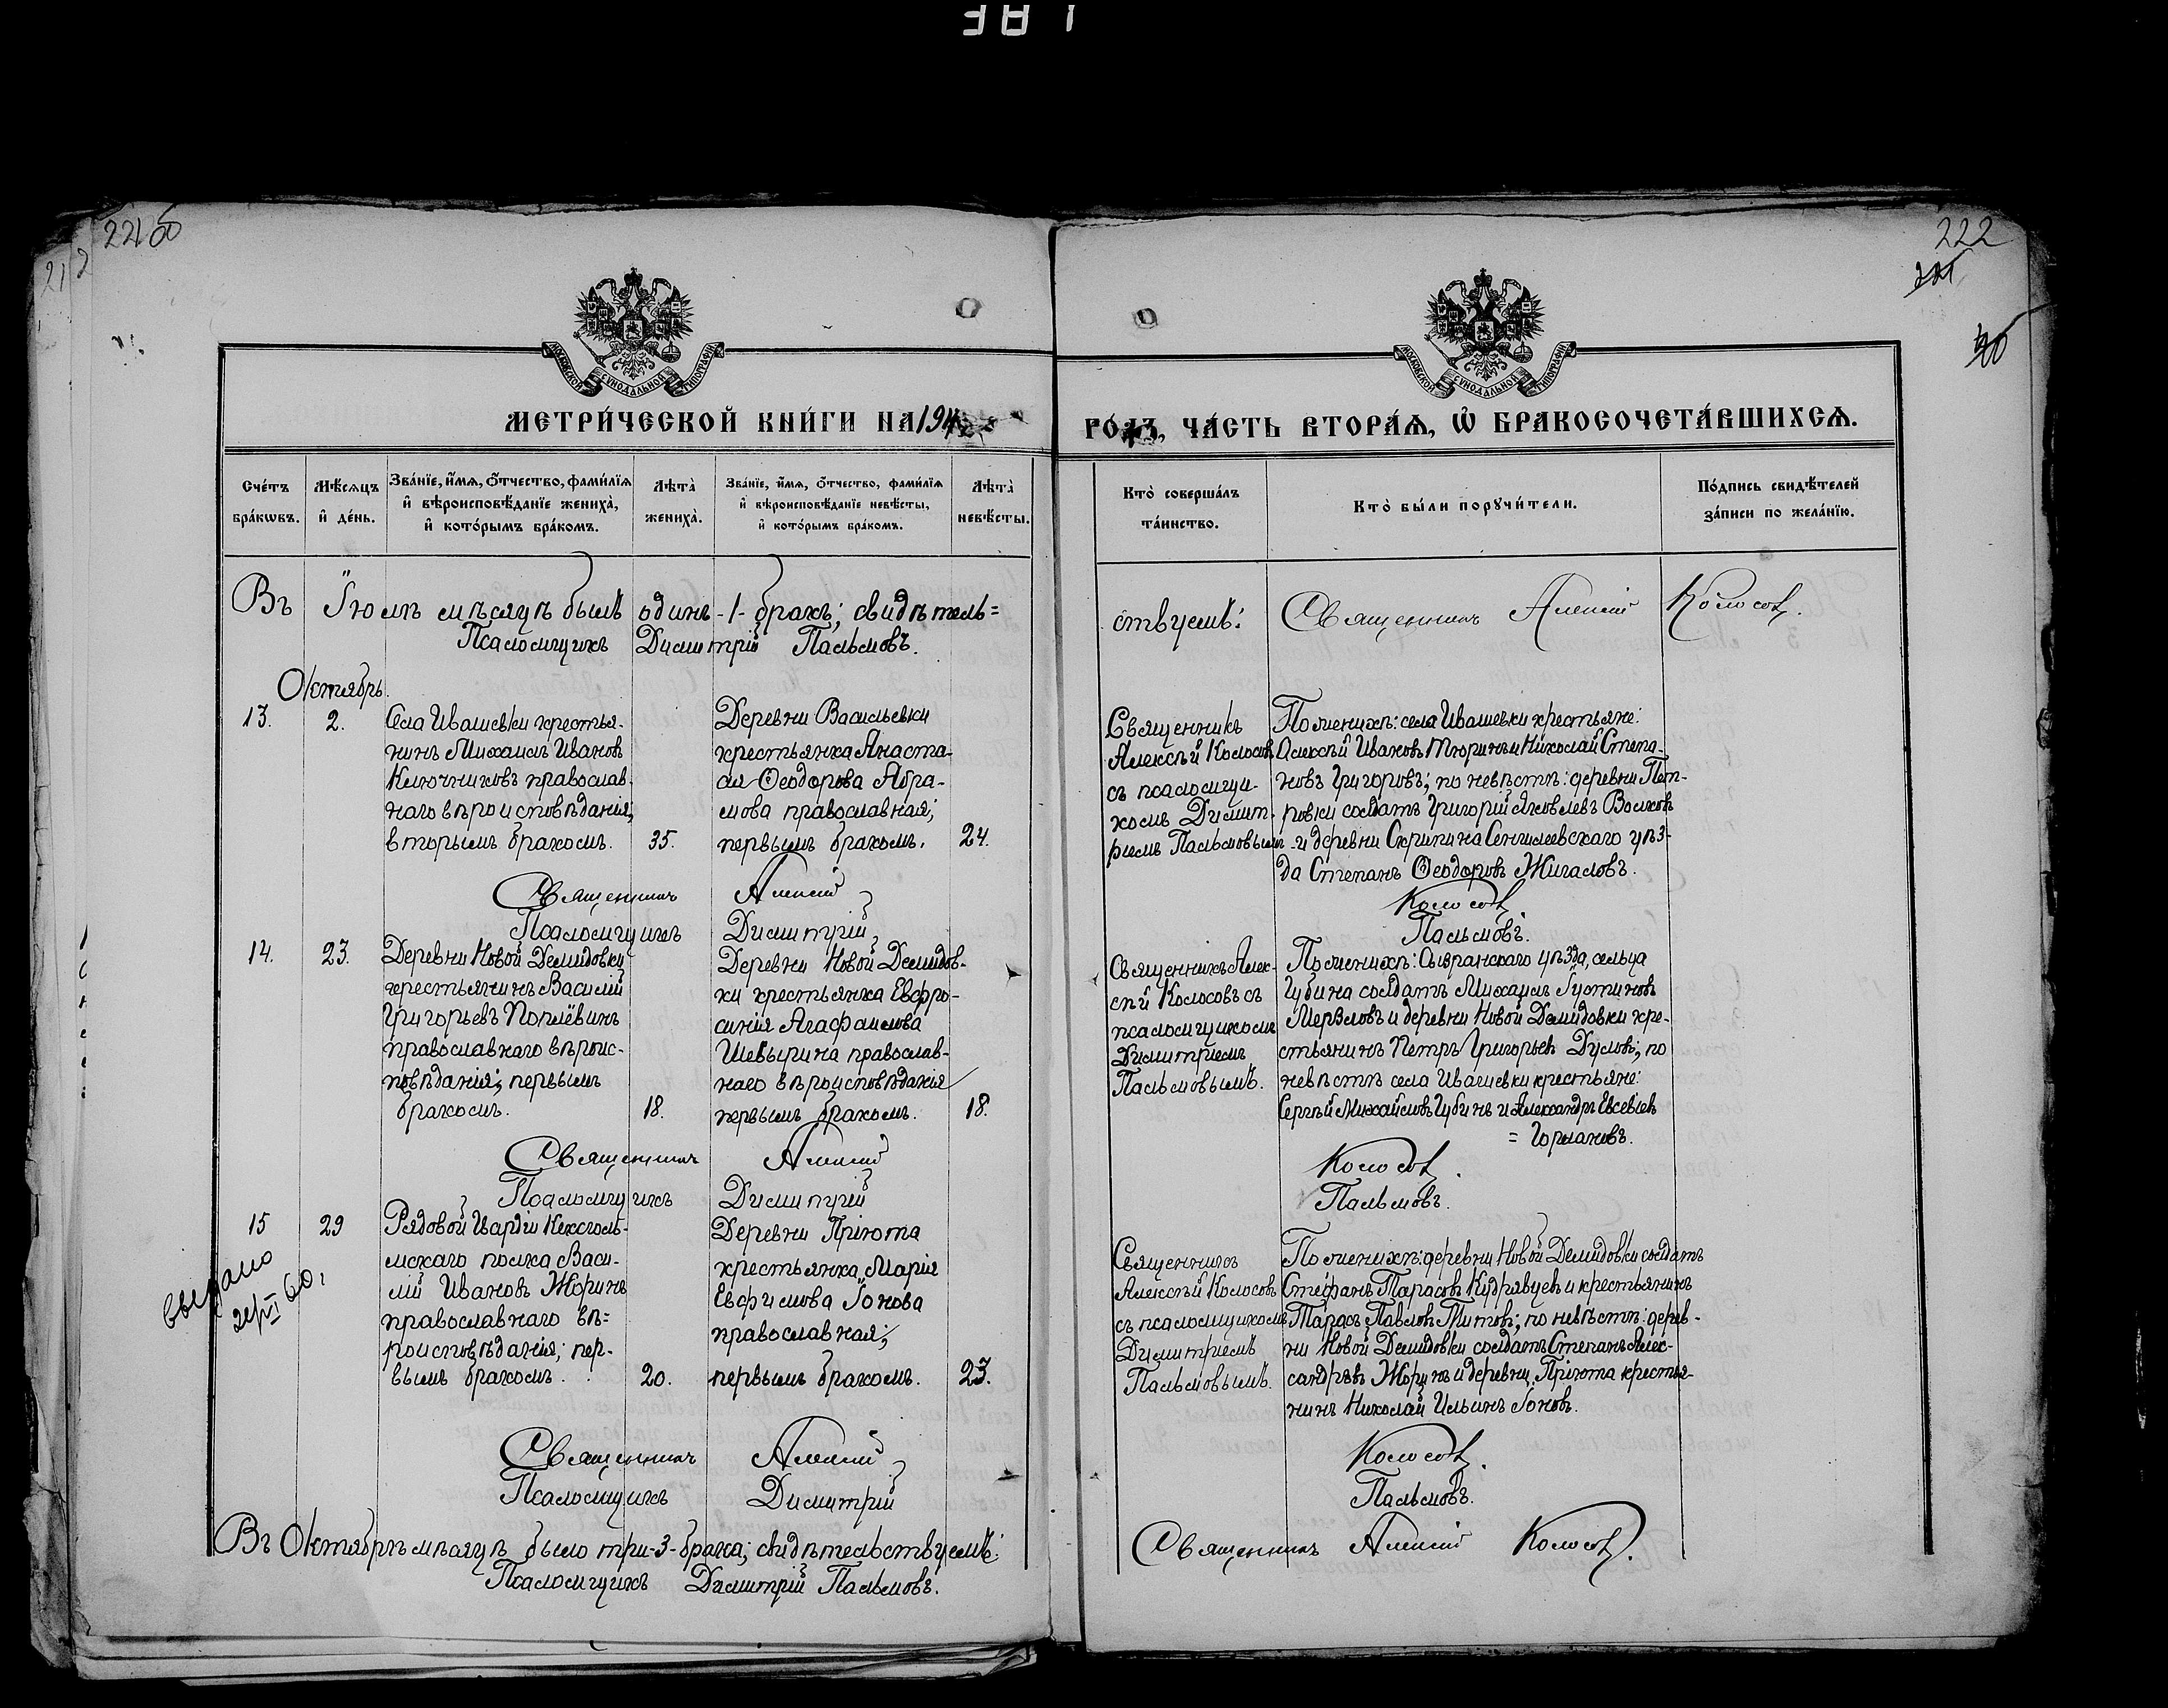 381
221 об
222
МОСКОВСКОЙ СѴНОДАЛЬНОЙ ТИПОГРАФІИ
МОСКОВСКОЙ СѴНОДАЛЬНОЙ ТИПОГРАФІИ
МЕТРИ́ЧЕСКОЙ КНИ́ГИ НА 191
ГО́ДЪ, ЧА́СТЬ ВТОРА́Ѧ, Ѡ БРАКОСОЧЕТА́ВШИХСѦ.
Сче́тъ бра́кѡвъ.
Мѣ́сѧцъ и҆ де́нь.
Зва́нїе, и҆́мѧ, ѻ҆́тчество, фами́лїѧ
и҆ вѣроисповѣ́данїе жениха̀,
и҆ кото́рымъ бра́комъ.
Лѣта̀ жениха̀.
Зва́нїе, и҆́мѧ, ѻ҆́тчество, фами́лїѧ
и҆ вѣроисповѣ́данїе невѣ́сты,
и҆ кото́рымъ бра́комъ.
Лѣта̀ невѣ́сты.
Кто̀ соверша́лъ
та́инство.
Кто̀ бы́ли порꙋчи́тели.
По́дпись свидѣ́телей
за́писи по жела́нїю.
Въ Іюлѣ мѣсяцѣ былъ одинъ -1- бракъ; свидѣтель=
ствуемъ: Священникъ Алексій Колосовъ.
Псаломщикъ Димитрій Пальмовъ.
Октябрь.
13.
2.
Села Ивашевки крестья-
нинъ Михаилъ Ивановъ
Ключниковъ православ-
наго вѣроисповѣданія;
вторымъ бракомъ.
35.
Деревни Васильевки
крестьянка Анаста-
ія Ѳеодорова Абра-
мова православная;
первымъ бракомъ.
24.
Священникъ
Алексѣй Колосовъ
съ псаломщи-
комъ Димит-
ріемъ Пальмовымъ
По женихѣ: села Ивашевки крестьяне:
Алексѣй Ивановъ Тюринъ и Николай Степа-
новъ Григоровъ; по невѣстѣ: деревни Пет-
ровки солдатъ Григорій Яковлевъ Волковъ
- и деревни Скрипина Сенгилеевскаго уѣз-
да Степанъ Ѳеодоровъ Жигаловъ.
Священникъ Алексій Колосовъ
Псаломщикъ Димитрій Пальмовъ.
14.
23.
Деревни Новой Демидовки
крестьянинъ Василій
Григорьевъ Поплёвинъ
православнаго вѣроис-
повѣданія; первымъ
бракомъ.
18.
Деревни Новой Демидов-
ки крестьянка Евфро-
синія Агафаилова
Шевырина православ-
наго вѣроисповѣданія
первымъ бракомъ.
18.
Священникъ Алек-
сѣй Колосовъ съ
псаломщикомъ
Димитріемъ
Пальмовымъ.
По женихѣ: Сызранскаго уѣзда, сельца
Губина солдатъ Михаилъ Іустиновъ
Мерзловъ и деревни Новой Демидовки кре-
стьянинъ Петръ Григорьевъ Думовъ; по
невѣстѣ села Ивашевки крестьяне:
Сергѣй Михайловъ Губинъ и Александръ Евсевіевъ
= Гормановъ.
Священникъ Алексій Колосовъ.
Псаломщикъ Димитрій Пальмовъ.
15
29
выдано
Рядовой Гвардіи Кексголь-
мскаго полка Васи-
лій Ивановъ Жоринъ
православнаго вѣ=
роисповѣданія; пер-
вымъ бракомъ.
20.
Деревни Пріюта
крестьянка Марія
Евфимова Іонова
православная;
первымъ бракомъ.
23.
Священникъ
Алексѣй Колосовъ
съ псаломщикомъ
Димитріемъ
Пальмовымъ.
По женихѣ: деревни Новой Демидовки солдатъ
Стефанъ Тарасовъ Кудрявцевъ и крестьянинъ
Тарасъ Павловъ Титовъ; по невѣстѣ: дерев-
ни Новой Демидовки солдатъ Степанъ Алек-
сандровъ Жоринъ и деревни Пріюта крестья-
нинъ Николай Ильинъ Іоновъ.
Священникъ Алексій Колосовъ.
Псаломщикъ Димитрій Пальмовъ.
Въ Октябрѣ мѣсяцѣ было три -3- брака; свидѣтельствуемъ:
Священникъ Алексій Колосовъ.
Псаломщикъ Димитрій Пальмовъ.